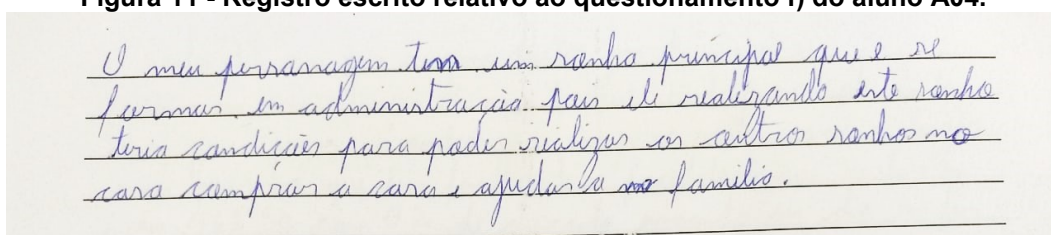 Figura 11 - Registro escrito relativo ao questionamento i) do aluno A04.
O meu personagem tem um sonho principal que e se
formar em administração pois ele realizando este sonho
teria condições para poder realizar os outros sonhos no
caso comprar a casa e ajudar a familia.